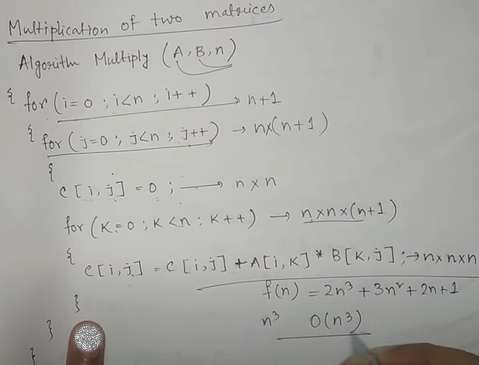 Multiplication of two matrices
Algorithm Multiply (A, B, n)
{ for (i=0 ; i<n ; i++) → n+1
{ for (j=0 ; j<n ; j++) → n×(n+1)
{
c[i,j] = 0 ; → n×n
for (K=0 ; K<n ; K++) → n×n×(n+1)
{ c[i,j] = c[i,j] + A[i,K] * B[K,j] ; → n×n×n
} f(n) = 2n³+3n²+2n+1
} n³ O(n³)
}